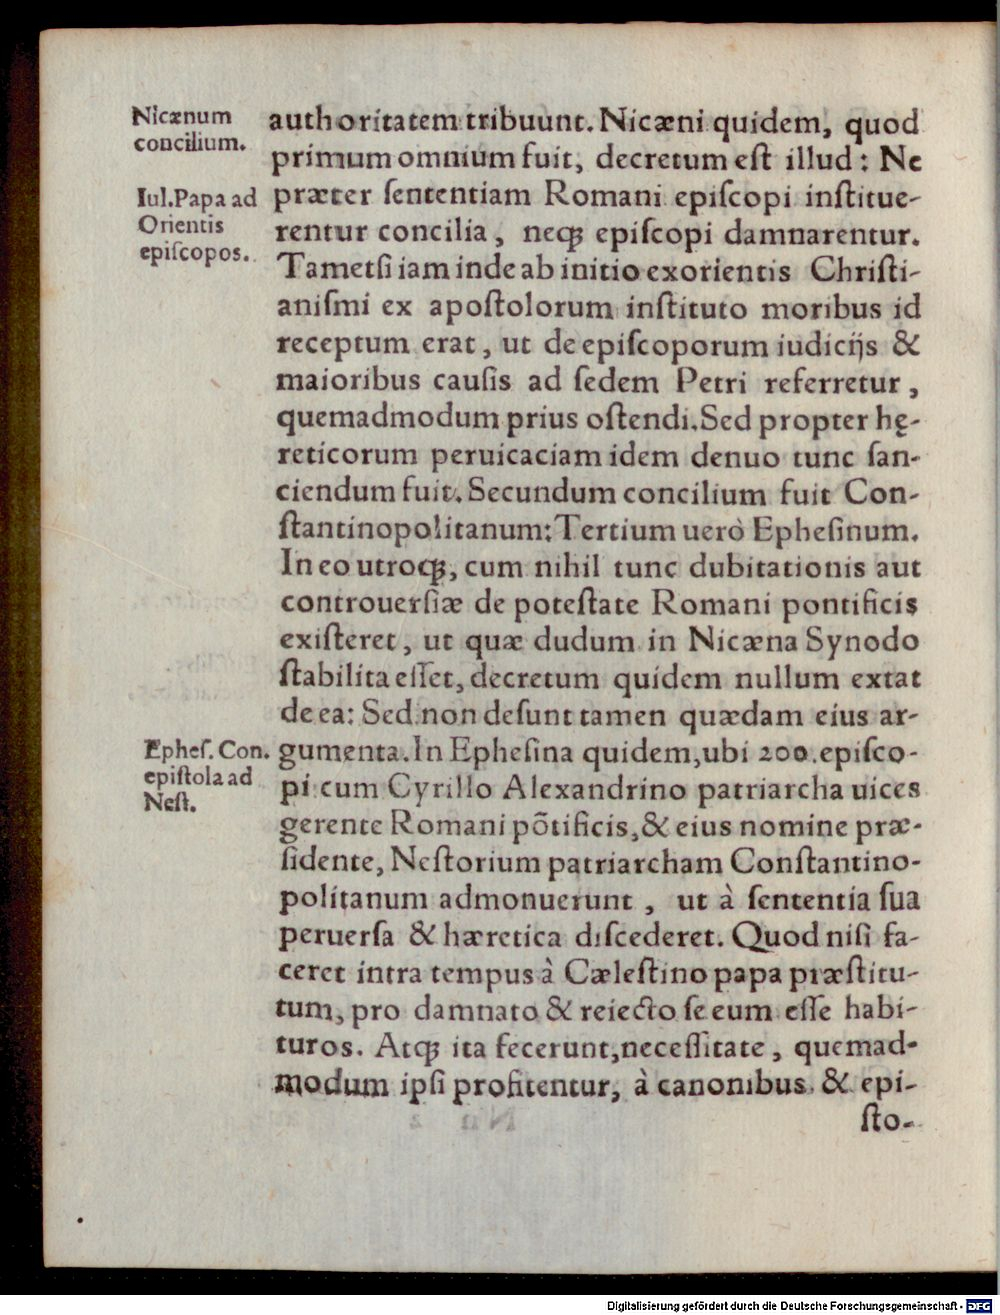 Nicænum
concilium.
Iul.Papa ad
Orientis
epiſcopos.
authoritatem tribuunt. Nicæni quidem, quod
primum omnium fuit, decretum eſt illud: Ne
præter ſententiam Romani epiſcopi inſtitue-
rentur concilia, neqꝫ epiſcopi damnarentur.
Tametſi iam inde ab initio exorientis Chriſti-
aniſmi ex apoſtolorum inſtituto moribus id
receptum erat, ut de epiſcoporum iudicijs &
maioribus cauſis ad ſedem Petri referretur,
quemadmodum prius oſtendi. Sed propter hę-
reticorum peruicaciam idem denuo tunc ſan-
ciendum fuit. Secundum concilium fuit Con-
ſtantinopolitanum: Tertium uerò Epheſinum.
In eo utroqꝫ, cum nihil tunc dubitationis aut
controuerſiæ de poteſtate Romani pontificis
exiſteret, ut quæ dudum in Nicæna Synodo
ſtabilita eſſet, decretum quidem nullum extat
de ea: Sed non deſunt tamen quædam eius ar-
Epheſ. Con.
epiſtola ad
Neſt.
gumenta. In Epheſina quidem, ubi 200. epiſco-
pi cum Cyrillo Alexandrino patriarcha uices
gerente Romani põtificis, & eius nomine præ-
ſidente, Neſtorium patriarcham Conſtantino-
politanum admonuerunt, ut à ſententia ſua
peruerſa & hæretica diſcederet. Quod niſi fa-
ceret intra tempus à Cæleſtino papa præſtitu-
tum, pro damnato & reiecto ſe eum eſſe habi-
turos. Atqꝫ ita fecerunt, neceſſitate, quemad-
modum ipſi profitentur, à canonibus & epi-
ſto-
Digitalisierung gefördert durch die Deutsche Forschungsgemeinschaft - DFG